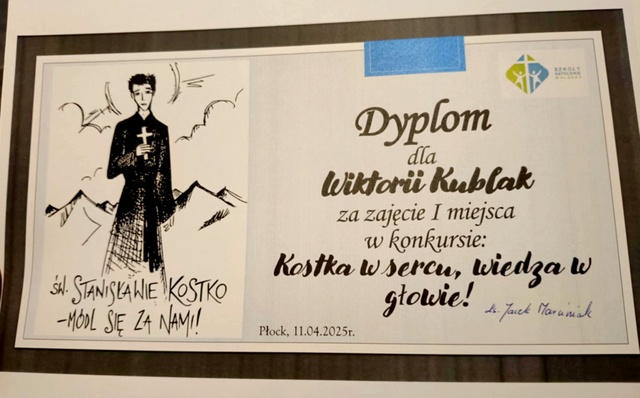 św. STANISŁAWIE KOSTKO
-MÓDL SIĘ ZA NAMI!
SZKOŁY
KATOLICKIE
Dyplom
dla
Wiktorii Kublak
za zajęcie I miejsca
w konkursie:
Kostka w sercu, wiedza w
głowie!
Płock, 11.04.2025r.
ks. Jacek Marciniak